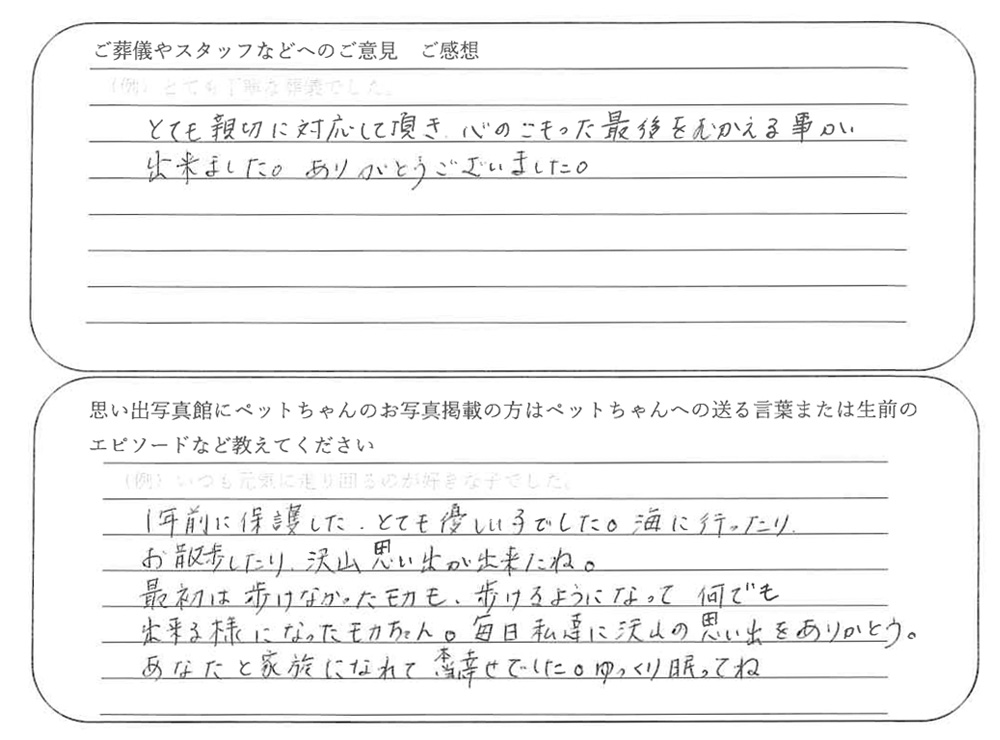 ご葬儀やスタッフなどへのご意見　ご感想
（例）とても丁寧な葬儀でした。
とても親切に対応して頂き、心のこもった最後をむかえる事がい
出来ました。ありがとうございました。
思い出写真館にペットちゃんのお写真掲載の方はペットちゃんへの送る言葉または生前の
エピソードなど教えてください
（例）いつも元気に走り回るのが好きな子でした。
1年前に保護した、とても優しい子でした。海に行ったり、
お散歩したり、沢山思い出が出来たね。
最初は歩けなかったモカも、歩けるようになって何でも
出来る様になったモカちゃん。毎日私達に沢山の思い出をありがとう。
あなたと家族になれて本当幸せでした。ゆっくり眠ってね